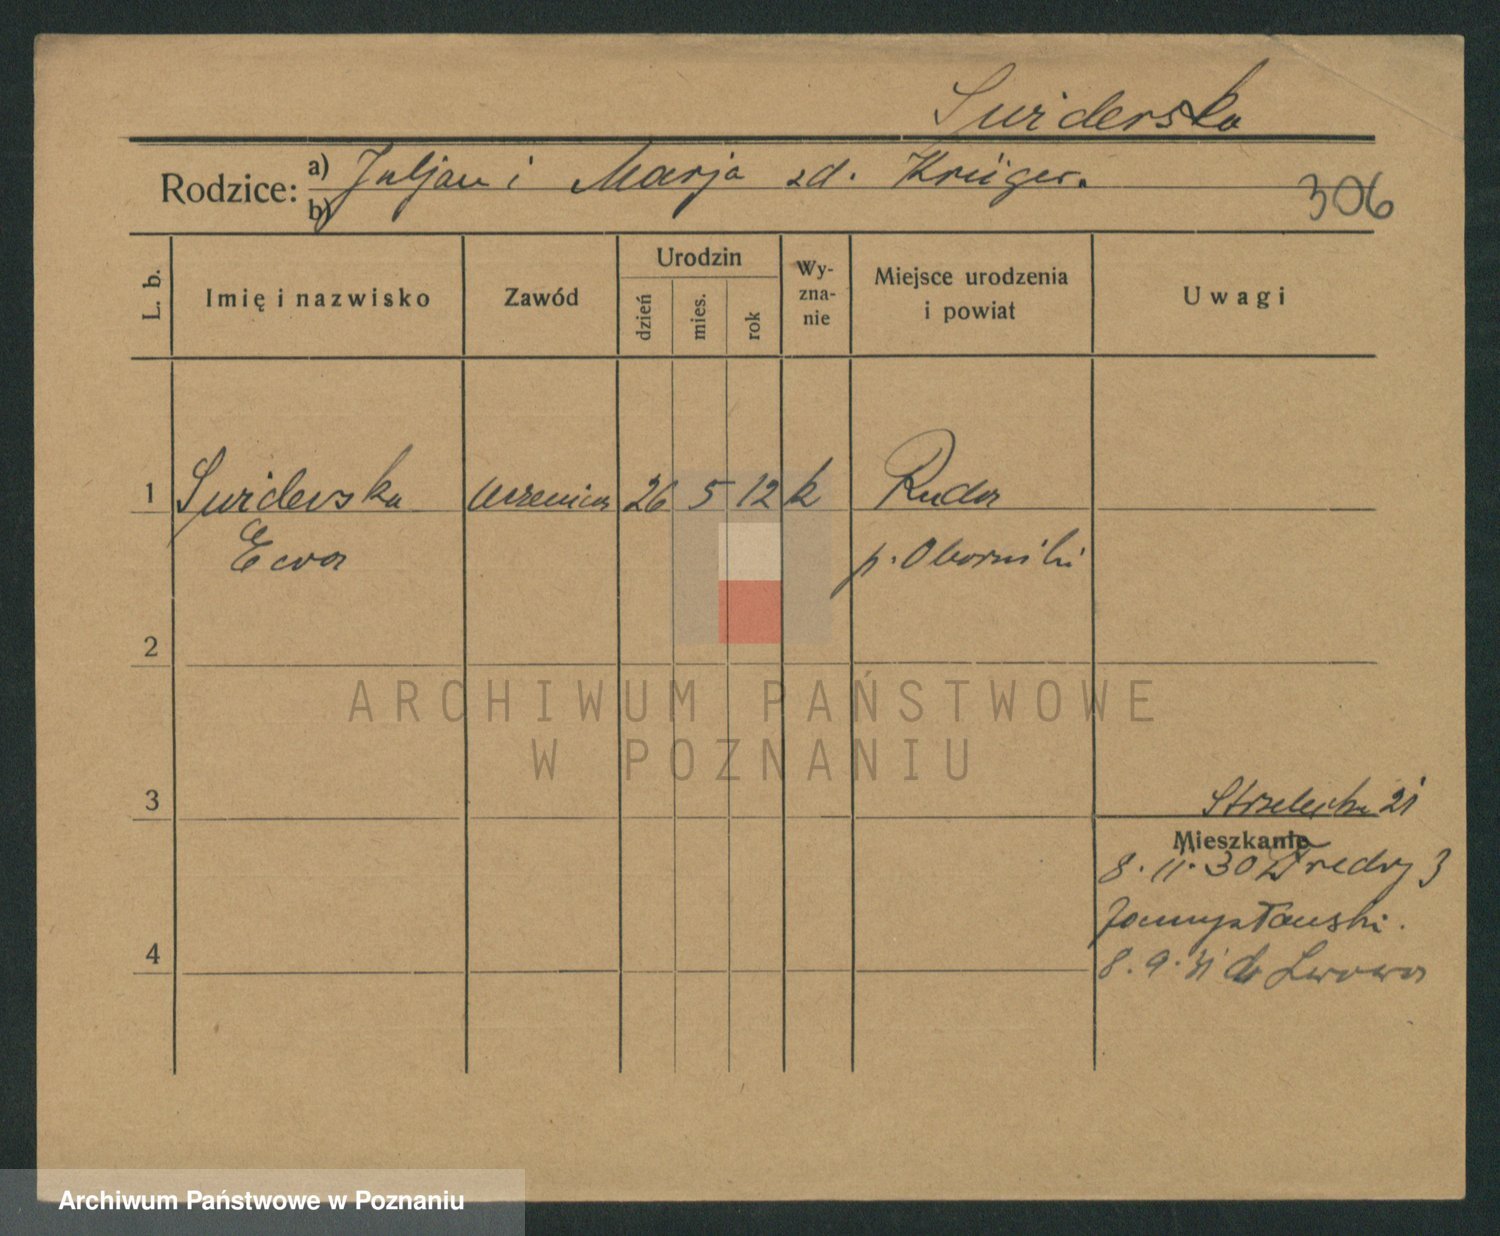 Świderska
Rodzice: a) Juljan i Marja zd. Krüger.
b)
306
L. b.
Imię i nazwisko
Zawód
Urodzin
dzień
mies.
rok
Wy-
zna-
nie
Miejsce urodzenia
i powiat
Uwagi
1 Świderska uczenica 26 5 12 k Ruda
Ewa p. Oborniki
2
ARCHIWUM PAŃSTWOWE
W POZNANIU
3
Strzelecka 21
Mieszkanie
8.11.30 Fredry 3
4
8.9.31 do Lwowa
Archiwum Państwowe w Poznaniu